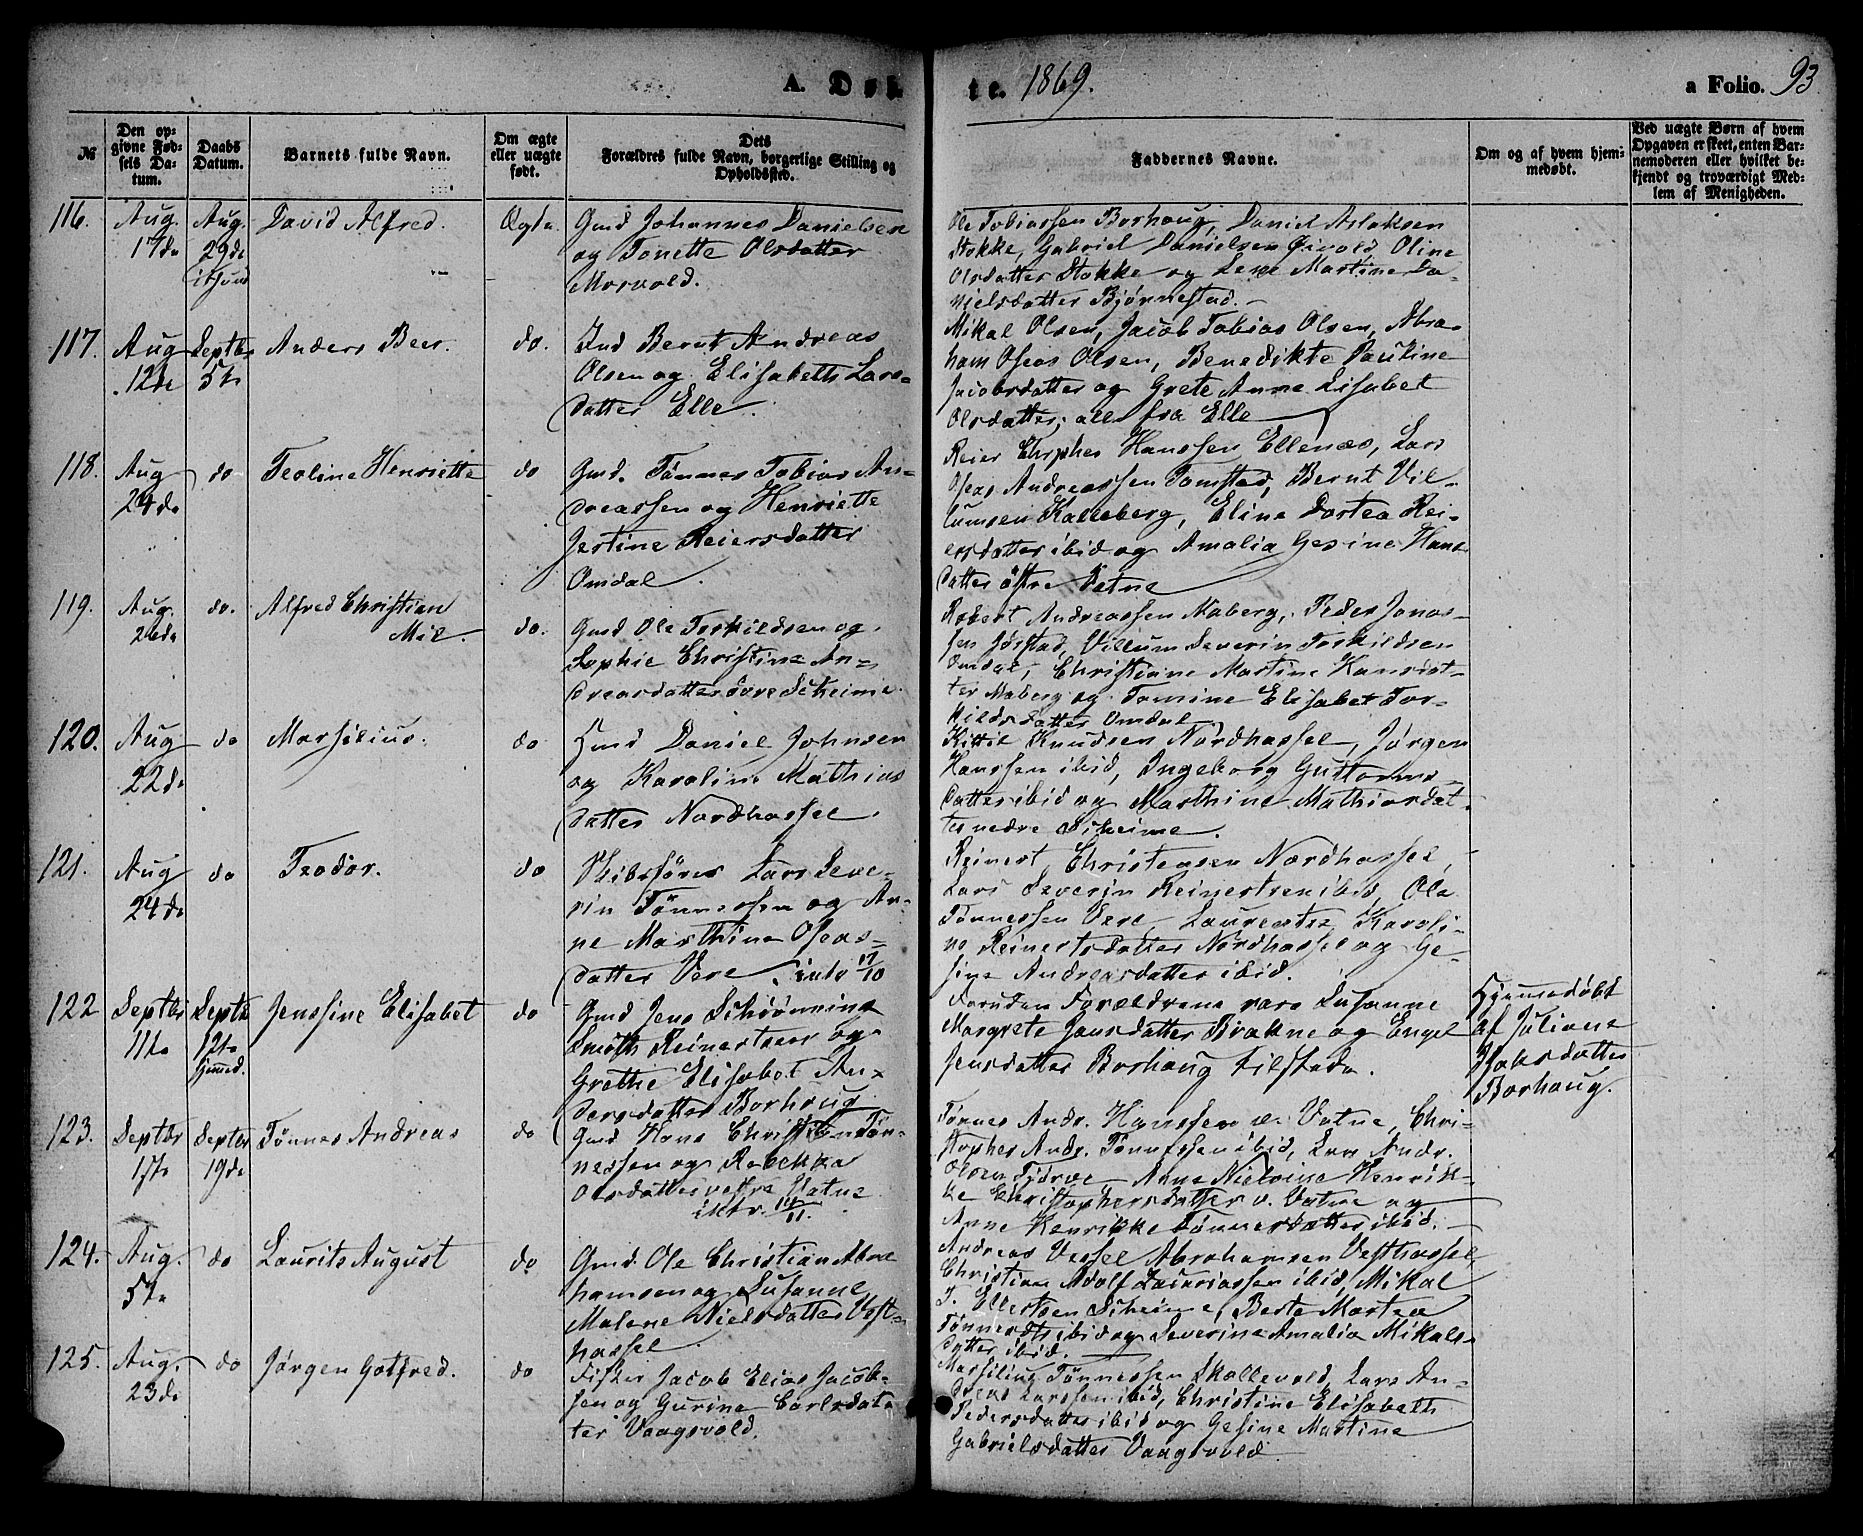 A. Døb
te. 1869.
a Folio. 93
№
Den op-
givne Fød-
sels Da-
tum.
Daabs
Datum.
Barnets fulde Navn.
Om ægte
eller uægte
født.
Dets
Forældres fulde Navn, borgerlige Stilling og
Opholdssted.
Faddernes Navne.
Om og af hvem hjem-
medøbt.
Ved uægte Børn af hvem
Opgaven er skeet, enten Bar-
nemoderen eller hvilket be-
kjendt og troværdigt Med-
lem af Menigheden.
116.
Aug.
17de
Aug.
29de
David Alfred.
Ægte
Gmd Johannes Danielsen
og Tonette Olsdatter
Morvold.
Ole Tobiassen Borhaug, Daniel Aslaksen
Stokke, Gabriel Danielsen Øivold, Oline
Olsdatter Stokke og Lene Martine Da-
nielsdatter Bjørnestad.
117.
Aug
12te
Septbr
5te
Anders Beer.
do.
Ind Bernt Andreas
Olsen og Elisabeth Lars-
datter Elle.
Mikal Olsen, Jacob Tobias Olsen, Abra-
ham Oseas Olsen, Benedikte Pauline
Jacobsdatter og Grete Anne Lisabet
Olsdatter; alle fra Elle
118.
Aug
24de
do
Teoline Henriette
do
Gmd. Tønnes Tobias An-
dreassen og Henriette
Jestine Reiersdatter
Omdal.
Reier Chrphes Hanssen Ellenæs, Lars
Oseas Andreassen Tomstad, Bernt Vil-
lumsen Kalleberg, Eline Dortea Rei-
ersdatter ibid og Amalia Gesine Hans
datter østre Vatne
119.
Aug.
26de
do.
Alfred Christian
Mil.
do.
Gmd Ole Torkildsen og
Sophie Christine An-
dreasdatter øvre Skeime.
Robert Andreassen Naberg, Peder Jonas-
sen Jørstad, Villum Severin Torkildsen
Omdal, Christiane Martine Hansdat-
ter Naberg og Tomine Elisabet Tor-
kildsdatter Omdal.
120.
Aug
22de
do
Marsilius.
do
Hmd Daniel Johnsen
og Karoline Mathias
datter Nordhassel.
Kittil Knudsen Nordhassel, Jørgen
Hanssen ibid, Ingeborg Guttorms-
datter ibid og Marthine Mathiasdat-
ter nedre Skeime.
121.
Aug
24de
do
Teodor.
do
Skibsfører Lars Seve-
rin Tønnessen og An-
ne Marthine Oseas-
datter Vere. intr 17/10
Reinert Christensen Nordhassel,
Lars Severin Reinertsen ibid, Ole
Tønnessen Vere, Laurentze Karoli-
ne Reinertsdatter Nordhassel og Ge-
sine Andreasdatter ibid.
122
Septbr
11te
Septbr
12te
hjemmed.
Jenssine Elisabet
do
Gmd Jens Schrønning
Smith Reinertsen og
Grethe Elisabet An-
dersdatter Borhaug
Foruden Forældrene vare Susanne
Margrete Jansdatter Brekne og Engel
Jensdatter Borhaug tilstede.
Hjemmedøbt
af Juliane
Jakobsdatter
Borhaug.
123.
Septbr
17te
Septbr
19de
Tønnes Andreas
do
Gmd Hans Christian Tøn-
nessen og Rebekka
Olsdatter vestre Vatne
intr. 14/11.
Tønnes Andr. Hanssen v. Vatne, Chri-
stopher Andr. Tønnessen ibid, Lars Andr.
Olsen Tjørve, Anne Nielsine Henrik-
ke Christophersdatter v. Vatne og
Anne Henrikke Tønnesdatter ibid.
124.
Aug.
5te
do
Laurits August
do
Gmd. Ole Christian Abra
hamsen og Susanne
Malene Nielsdatter Vest-
hassel.
Andreas Vessel Abrahamsen Vesthassel,
Christian Adolf Zakariassen ibid, Mikal
T. Ellertsen Skeime, Berte Martea
Tønnesdtr ibid og Severine Amalia Mikals-
datter ibid.
125.
Aug.
23de
do
Jørgen Gotfred.
do
Fisker Jacob Elias Jacob-
sen og Gurine Carlsdat-
ter Vaagsvold.
Marsilius Tønnessen Skollevold, Lars An-
dreas Larssen ibid, Christine Elisabeth
Pedersdatter ibid og Gesine Martine
Gabrielsdatter Vaagsvold